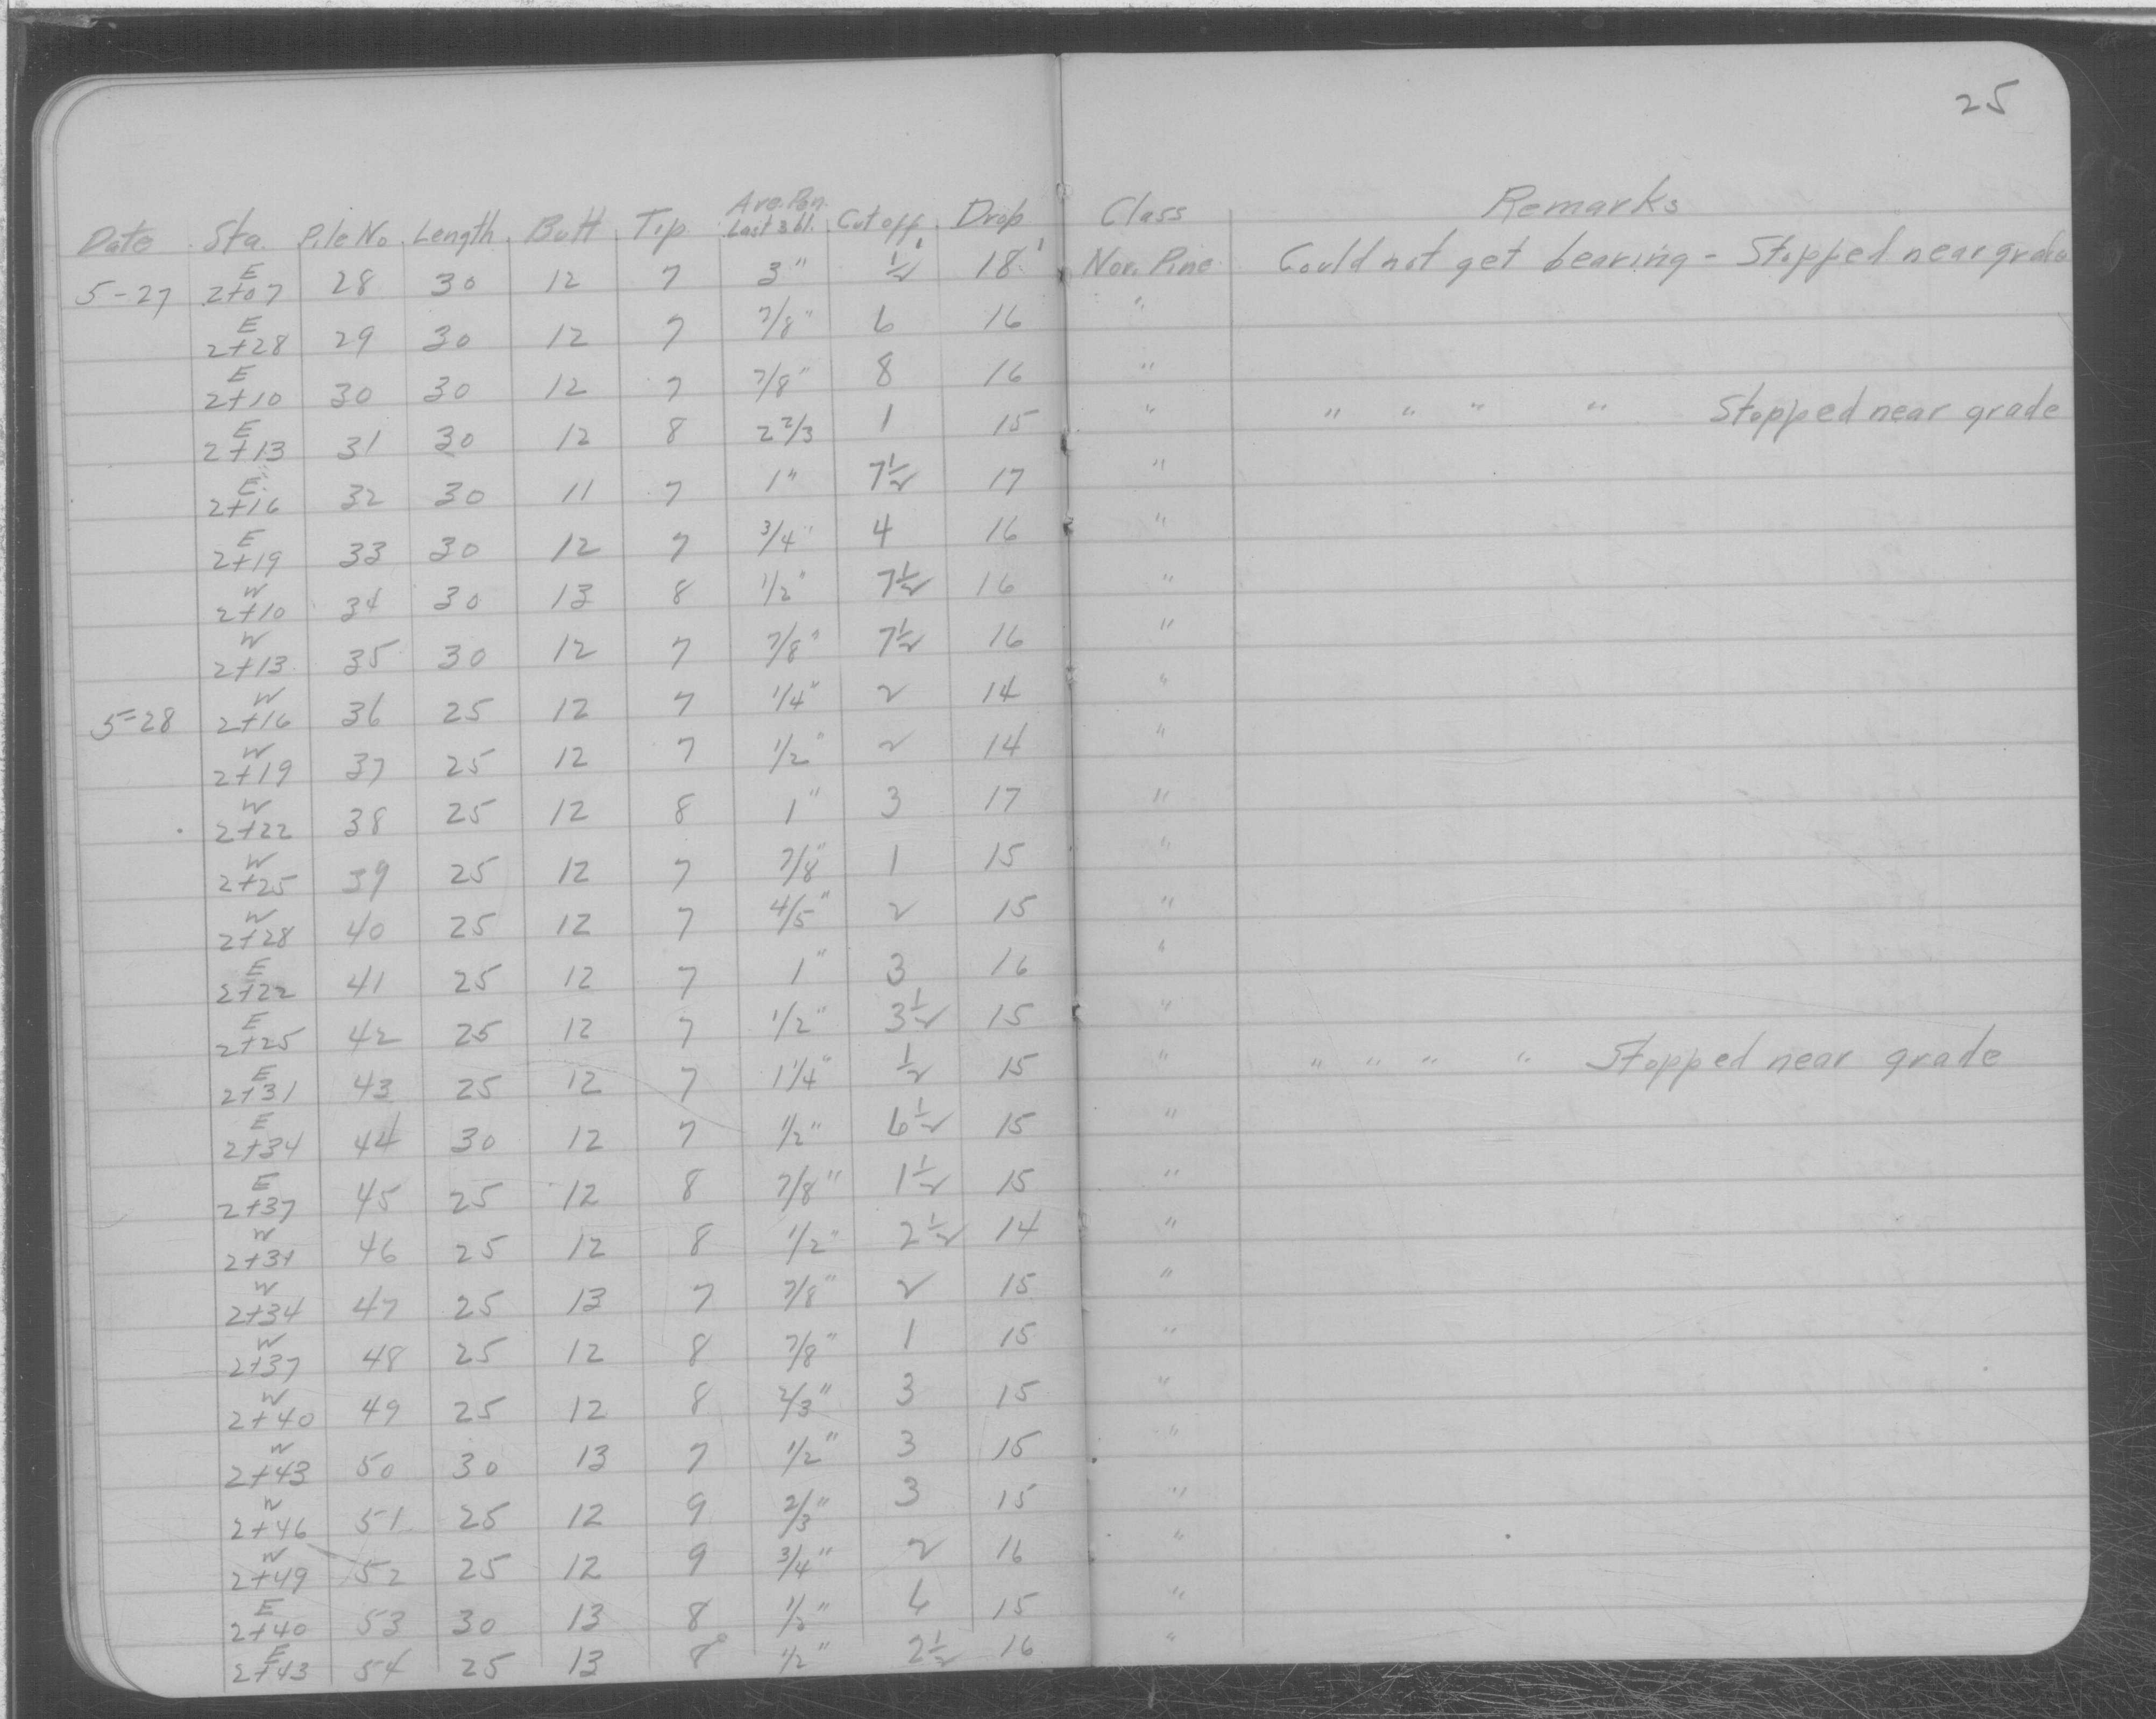 25
Date Sta. Pile No. Length Butt Tip Ave. Pen. Last 3 bl. Cut off Drop Class Remarks
5-27 E 2+07 28 30 12 7 3" ½' 18' Nor. Pine Could not get bearing - Stopped near grade
E 2+28 29 30 12 7 7/8" 6 16 "
E 2+10 30 30 12 7 7/8" 8 16 "
E 2+13 31 30 12 8 2 2/3 1 15 " " " " " Stopped near grade
E 2+16 32 30 11 7 1" 7½ 17 "
E 2+19 33 30 12 7 3/4" 4 16 "
W 2+10 34 30 13 8 1/2" 7½ 16 "
W 2+13 35 30 12 7 7/8" 7½ 16 "
5-28 W 2+16 36 25 12 7 1/4" 2 14 "
W 2+19 37 25 12 7 1/2" 2 14 "
W 2+22 38 25 12 8 1" 3 17 "
W 2+25 39 25 12 7 7/8" 1 15 "
W 2+28 40 25 12 7 4/5" 2 15 "
E 2+22 41 25 12 7 1" 3 16 "
E 2+25 42 25 12 7 1/2" 3½ 15 "
E 2+31 43 25 12 7 1 1/4" ½ 15 " " " " " Stopped near grade
E 2+34 44 30 12 7 1/2" 6½ 15 "
E 2+37 45 25 12 8 7/8" 1½ 15 "
W 2+31 46 25 12 8 1/2" 2½ 14 "
W 2+34 47 25 13 7 7/8" 2 15 "
W 2+37 48 25 12 8 7/8" 1 15 "
W 2+40 49 25 12 8 2/3" 3 15 "
W 2+43 50 30 13 7 1/2" 3 15 "
W 2+46 51 25 12 9 2/3" 3 15 "
W 2+49 52 25 12 9 3/4" 2 16 "
E 2+40 53 30 13 8 1/2" 6 15 "
E 2+43 54 25 13 8 1/2" 2½ 16 "